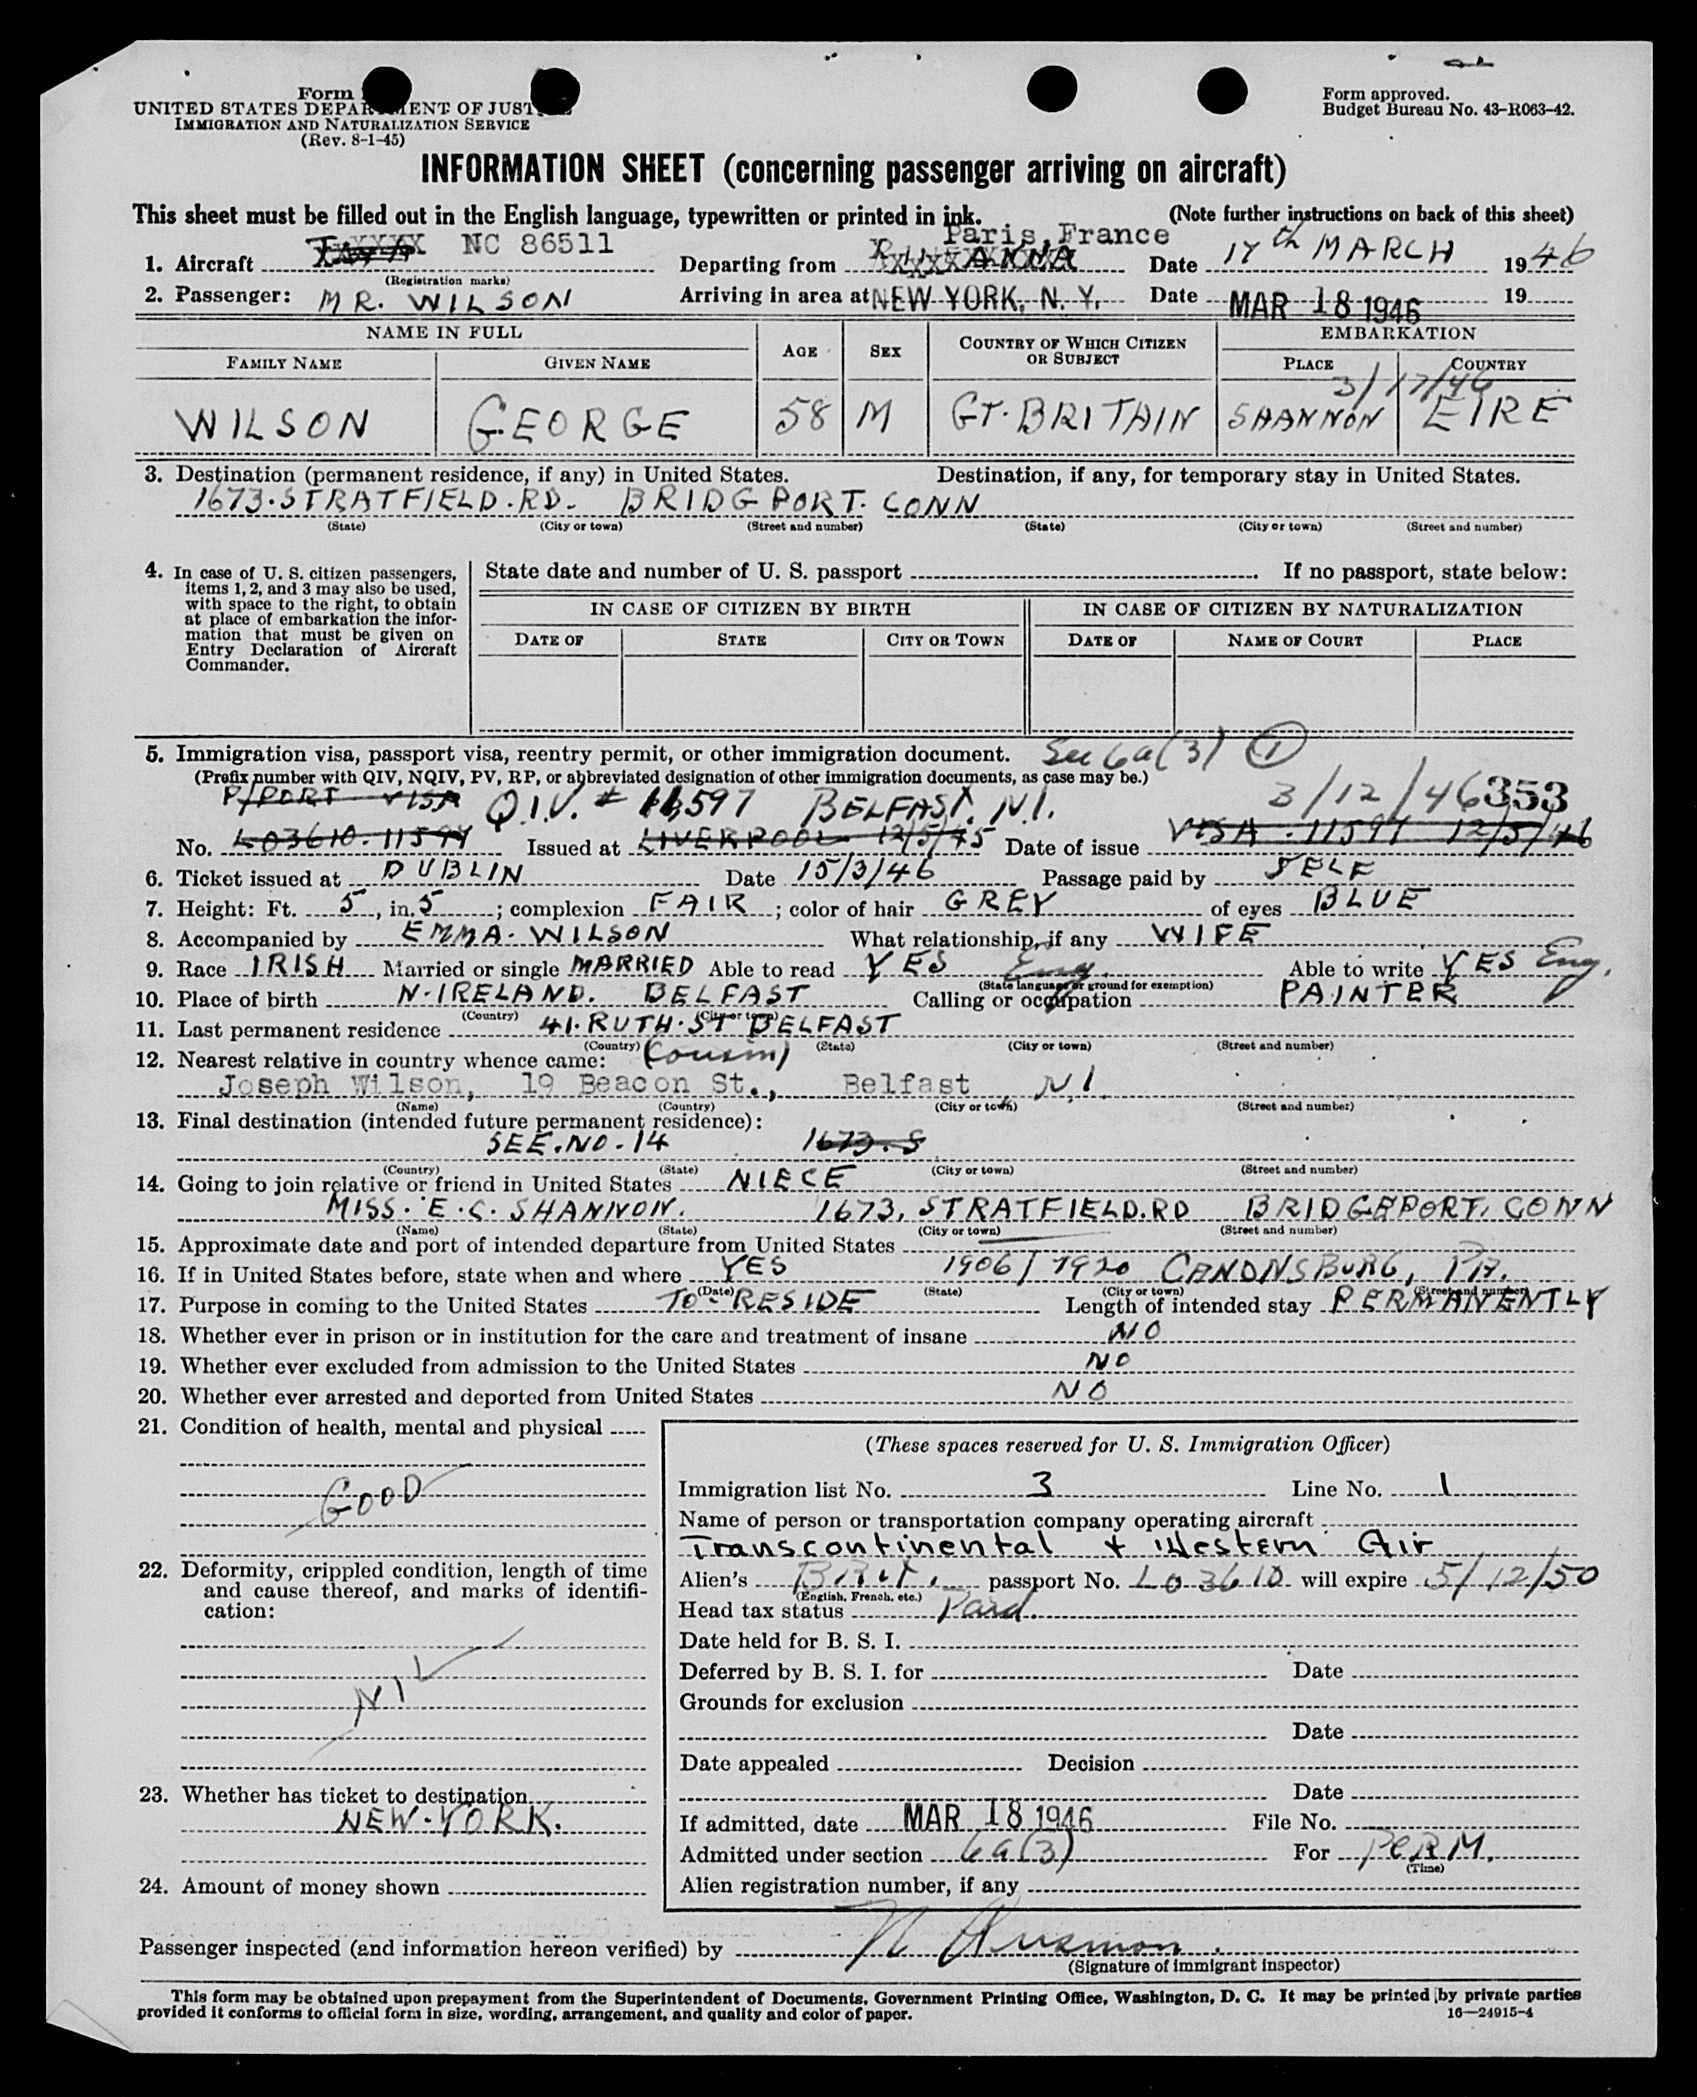 Form
UNITED STATES DEPARTMENT OF JUSTICE
IMMIGRATION AND NATURALIZATION SERVICE
(Rev. 8-1-45)
Form approved.
Budget Bureau No. 43-R063-42.
INFORMATION SHEET (concerning passenger arriving on aircraft)
This sheet must be filled out in the English language, typewritten or printed in ink. (Note further instructions on back of this sheet)
1. Aircraft NC 86511 Departing from Paris, France Date 17th MARCH 1946
(Registration marks)
2. Passenger: MR. WILSON Arriving in area at NEW YORK, N. Y. Date MAR 18 1946 19
NAME IN FULL AGE SEX COUNTRY OF WHICH CITIZEN OR SUBJECT EMBARKATION
FAMILY NAME GIVEN NAME PLACE COUNTRY
3/17/46
WILSON GEORGE 58 M GT. BRITAIN SHANNON EIRE
3. Destination (permanent residence, if any) in United States. Destination, if any, for temporary stay in United States.
1673. STRATFIELD. RD. BRIDGPORT. CONN
(State) (City or town) (Street and number) (State) (City or town) (Street and number)
4. In case of U. S. citizen passengers, items 1, 2, and 3 may also be used, with space to the right, to obtain at place of embarkation the information that must be given on Entry Declaration of Aircraft Commander.
State date and number of U. S. passport If no passport, state below:
IN CASE OF CITIZEN BY BIRTH IN CASE OF CITIZEN BY NATURALIZATION
DATE OF STATE CITY OR TOWN DATE OF NAME OF COURT PLACE
5. Immigration visa, passport visa, reentry permit, or other immigration document. Sec 6a(3) 1
(Prefix number with QIV, NQIV, PV, RP, or abbreviated designation of other immigration documents, as case may be.)
P/PORT VISA Q.I.V. # 11597 BELFAST, N.I. 3/12/46 353
No. L03610. 11597 Issued at LIVERPOOL 12/5/45 Date of issue VISA. 11597 12/3/46
6. Ticket issued at DUBLIN Date 15/3/46 Passage paid by SELF
7. Height: Ft. 5, in. 5; complexion FAIR; color of hair GREY of eyes BLUE
8. Accompanied by EMMA. WILSON What relationship, if any WIFE
9. Race IRISH Married or single MARRIED Able to read YES Eng. Able to write YES Eng.
(State language or ground for exemption)
10. Place of birth N. IRELAND. BELFAST Calling or occupation PAINTER
(Country) (City or town)
11. Last permanent residence 41. RUTH. ST BELFAST
(Country) (State) (City or town) (Street and number)
12. Nearest relative in country whence came: (Cousin)
Joseph Wilson, 19 Beacon St., Belfast N.I.
(Name) (Country) (City or town) (Street and number)
13. Final destination (intended future permanent residence):
SEE. NO. 14 1673. S
(Country) (State) (City or town) (Street and number)
14. Going to join relative or friend in United States NIECE
MISS. E. C. SHANNON. 1673. STRATFIELD. RD BRIDGEPORT. CONN
(Name) (State) (City or town) (Street and number)
15. Approximate date and port of intended departure from United States
16. If in United States before, state when and where YES 1906/1920 CANONSBURG, PA.
(Date) (State) (City or town) (Street and number)
17. Purpose in coming to the United States TO RESIDE Length of intended stay PERMANENTLY
18. Whether ever in prison or in institution for the care and treatment of insane NO
19. Whether ever excluded from admission to the United States NO
20. Whether ever arrested and deported from United States NO
21. Condition of health, mental and physical
GOOD
22. Deformity, crippled condition, length of time and cause thereof, and marks of identification:
NIL
23. Whether has ticket to destination
NEW. YORK.
24. Amount of money shown
(These spaces reserved for U. S. Immigration Officer)
Immigration list No. 3 Line No. 1
Name of person or transportation company operating aircraft
Transcontinental + Western Air
Alien's Brit. passport No. L03610 will expire 5/12/50
(English, French, etc.)
Head tax status Paid.
Date held for B. S. I.
Deferred by B. S. I. for Date
Grounds for exclusion
Date
Date appealed Decision
Date
If admitted, date MAR 18 1946 File No.
Admitted under section 6a(3) For PERM.
(Time)
Alien registration number, if any
Passenger inspected (and information hereon verified) by
(Signature of immigrant inspector)
This form may be obtained upon prepayment from the Superintendent of Documents, Government Printing Office, Washington, D. C. It may be printed by private parties
provided it conforms to official form in size, wording, arrangement, and quality and color of paper. 16—24915-4